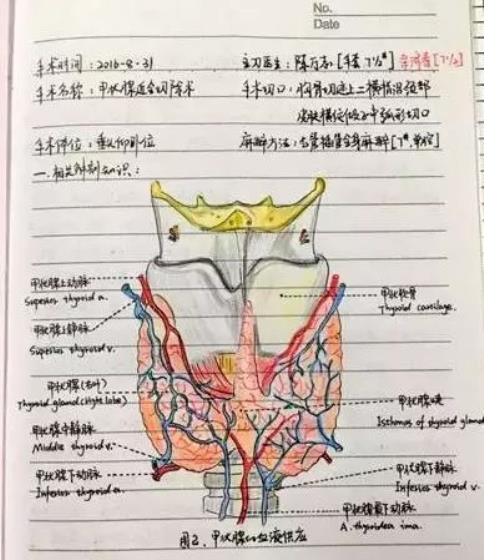 No.
Date
手术时间：2016-8-31
主刀医生：陈万志[手套 7½#]
手术名称：甲状腺近全切除术
手术切口：胸骨切迹上二横指沿颈部
皮肤横纹做正中弧形切口
手术体位：垂头仰卧位
麻醉方法：气管插管全身麻醉[7#,单腔]
一.相关解剖知识：
甲状腺上动脉
Superior thyroid a.
甲状腺上静脉
Superior thyroid v.
甲状软骨
Thyroid cartilage.
甲状腺(右叶)
Thyroid gland(right lobe)
甲状腺峡
Isthmus of thyroid gland
甲状腺中静脉
Middle thyroid v.
甲状腺下动脉
Inferior thyroid a.
甲状腺下静脉
Inferior thyroid v.
甲状腺最下动脉
A. thyroidea ima.
图2、甲状腺的血液供应